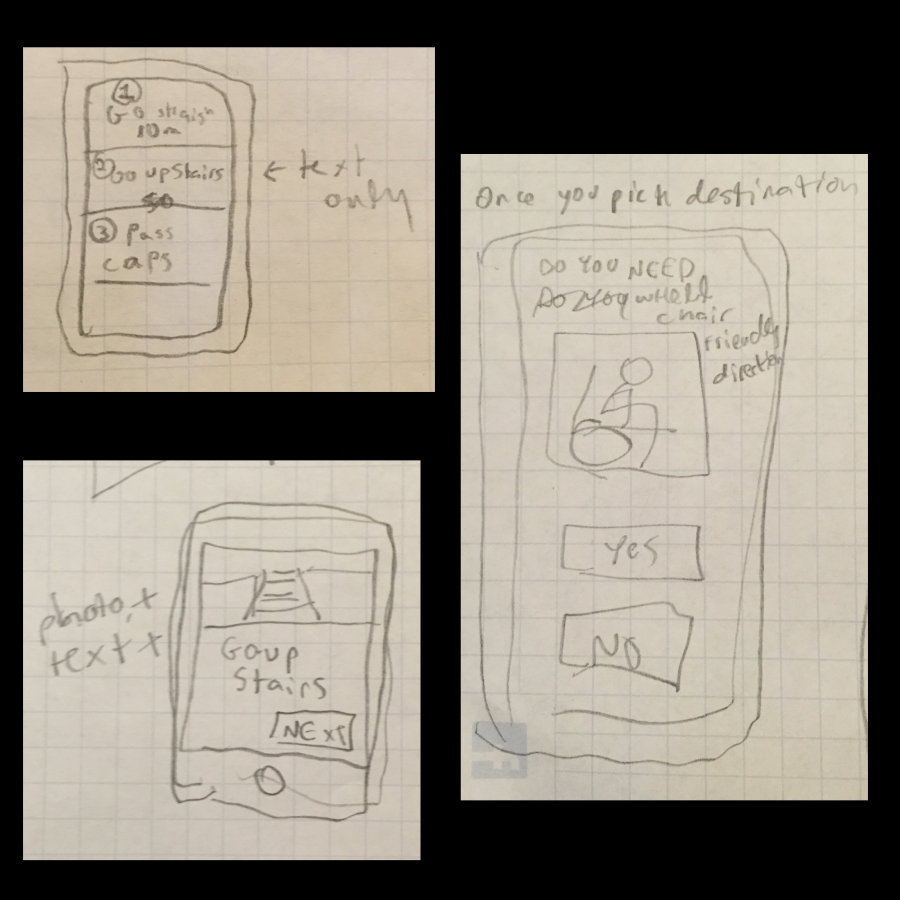 1
Go straigh
10m
2 Go upstairs
3 pass
caps
← text
only
photo, +
text +
Go up
Stairs
NEXT
Once you pick destination
DO YOU NEED
wheel
chair
friendly
direction
YES
NO